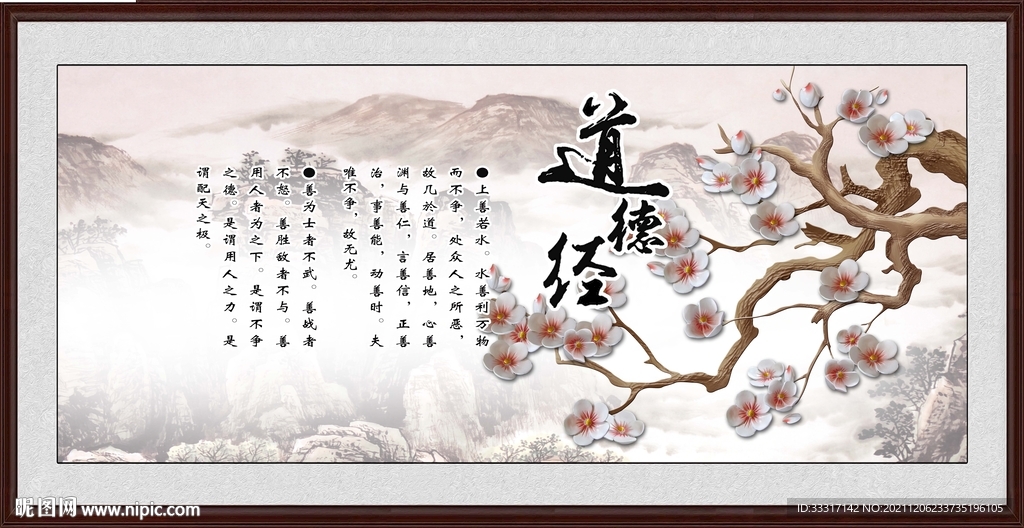 道德经
●上善若水。水善利万物
而不争，处众人之所恶，
故几於道。居善地，心善
渊与善仁，言善信，正善
治，事善能，动善时。夫
唯不争，故无尤。
●善为士者不武。善战者
不怒。善胜敌者不与。善
用人者为之下。是谓不争
之德。是谓用人之力。是
谓配天之极。
昵图网 www.nipic.com
ID:33317142 NO:20211206233735196105